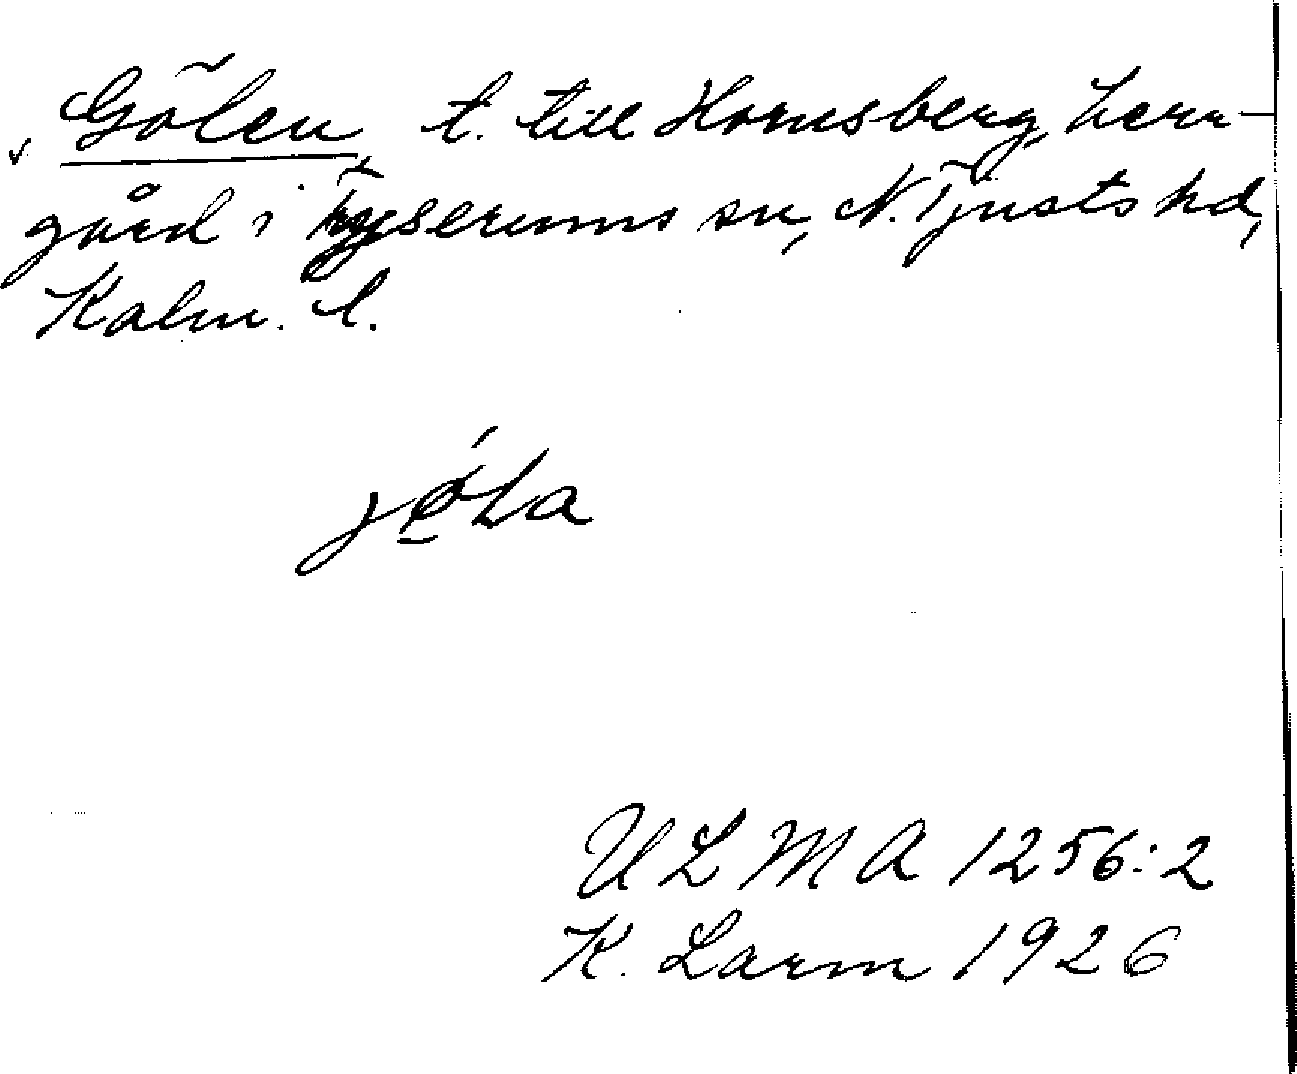 Gölen t. till Hornsberg, herr-
gård i Tryserums sn, N. Tjusts hd,
Kalm. l.
ULMA 1256:2
K. Larm 1926